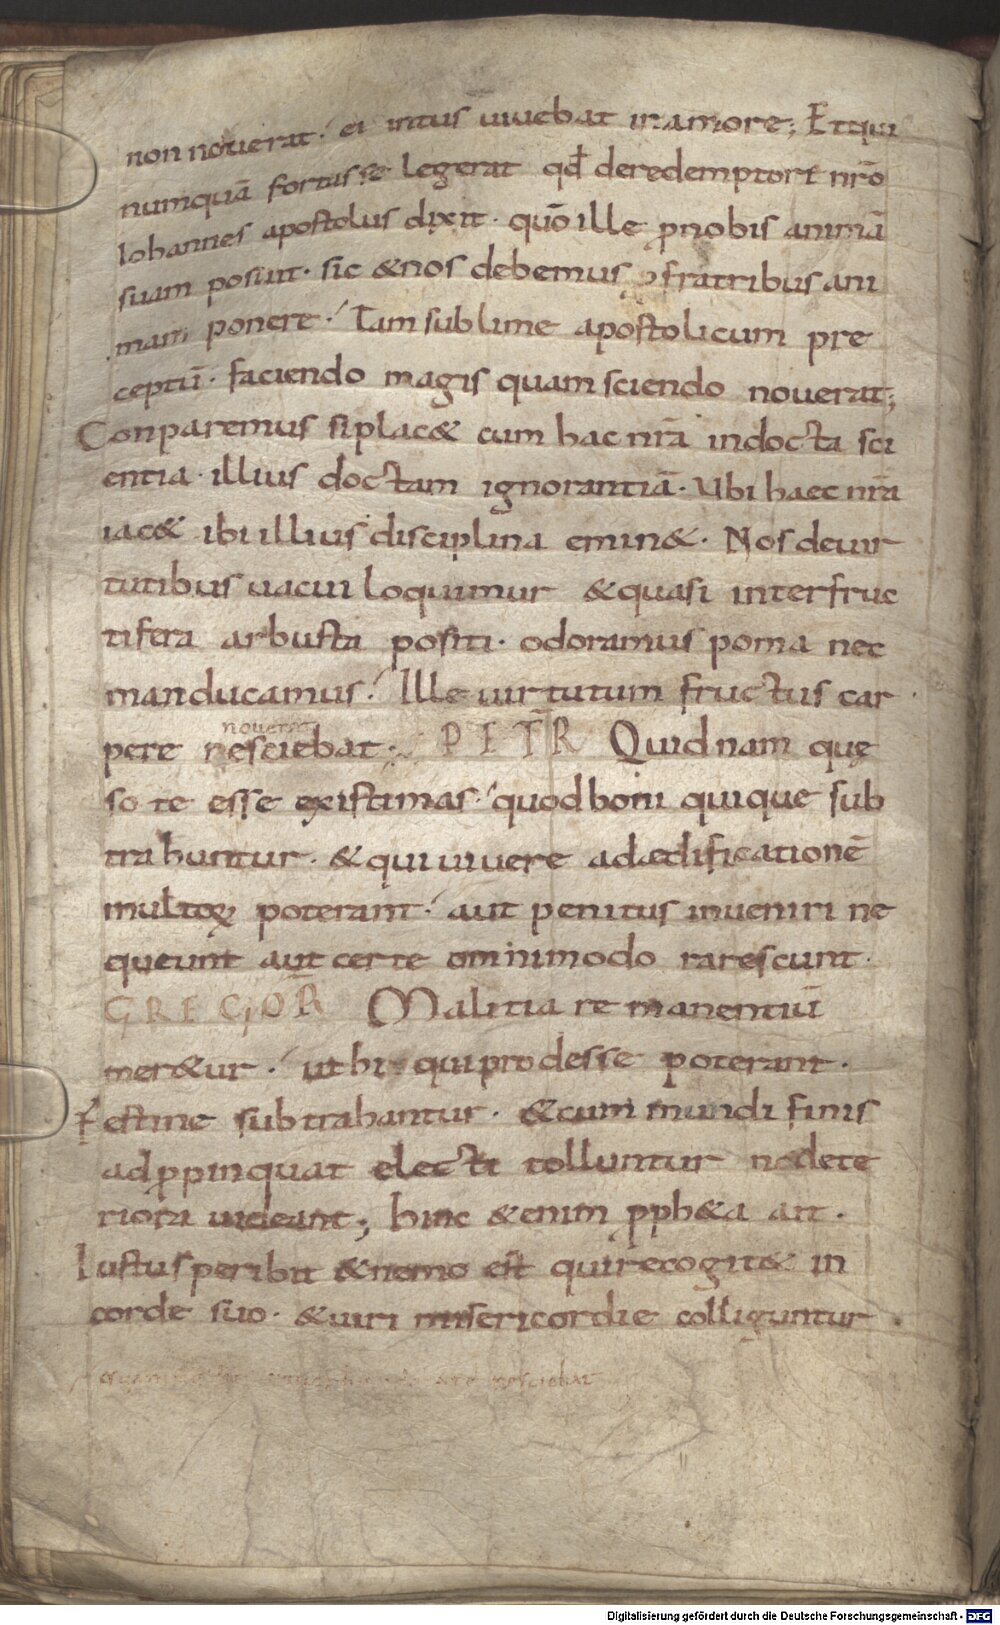 non nouerat. ei intus uiuebat in amore; Et qui
numquā fortasse legerat qđ de redemptore nr̄o
Iohannes apostolus dixit. quō ille ꝓ nobis animā
suam posuit. sic & nos debemus ꝓ fratribus ani
mam ponere. Tam sublime apostolicum pre
ceptū. faciendo magis quam sciendo nouerat;
Conparemus si plac& cum hac nr̄a indocta sci
entia. illius doctam ignorantiā. Ubi haec nr̄a
iac& ibi illius disciplina emin&. Nos de uir
tutibus uacui loquimur & quasi inter fruc
tifera arbusta positi. odoramus poma nec
manducamus. Ille uirtutum fructus car
nouerat
pere nesciebat; PETR̄ Quidnam quę
so te esse existimas. quod boni quique sub
trahuntur. & qui uiuere ad aedificationē
multoꝝ poterant. aut penitus inueniri ne
queunt aut certe omnimodo rarescunt.
GREGOR̄ Malitia remanentiū
mer&ur. ut hi qui prodesse poterant.
festine subtrahantur. & cum mundi finis
adꝓpinquat electi tolluntur ne dete
riora uideant; hinc &enim ꝓph&a ait.
Iustus peribit & nemo est qui recogit& in
corde suo. & uiri misericordie colliguntur.
nesciebat
Digitalisierung gefördert durch die Deutsche Forschungsgemeinschaft - DFG